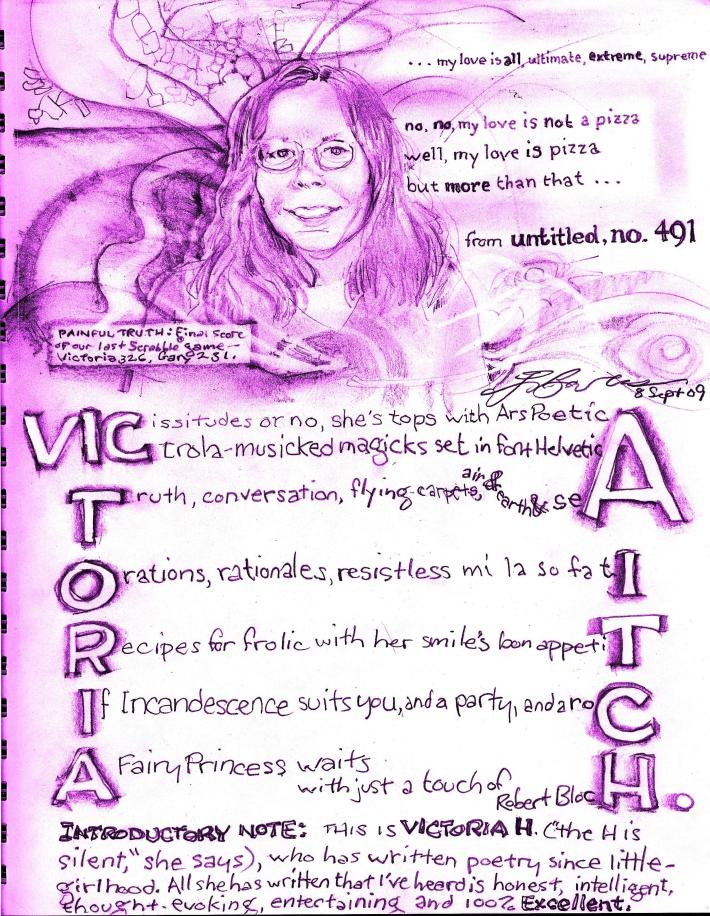 ... my love is all, ultimate, extreme, supreme
no, no, my love is not a pizza
well, my love is pizza
but more than that ...
from untitled, no. 491
PAINFUL TRUTH: Final Score
of our last Scrabble game -
Victoria 326, Gary 231.
8 Sept 09
VICissitudes or no, she's tops with Ars PoeticA
trola-musicked magicks set in font Helvetic
Truth, conversation, flying-carpets, air & earth & se
Orations, rationales, resistless mi la so fa tI
Recipes for frolic with her smile's bon appetiT
If Incandescence suits you, and a party, and a roC
A Fairy Princess waits
with just a touch of
Robert BlocH.
INTRODUCTORY NOTE: THIS IS VICTORIA H. ("the H is
silent," she says), who has written poetry since little-
girlhood. All she has written that I've heard is honest, intelligent,
thought-evoking, entertaining and 100% Excellent.